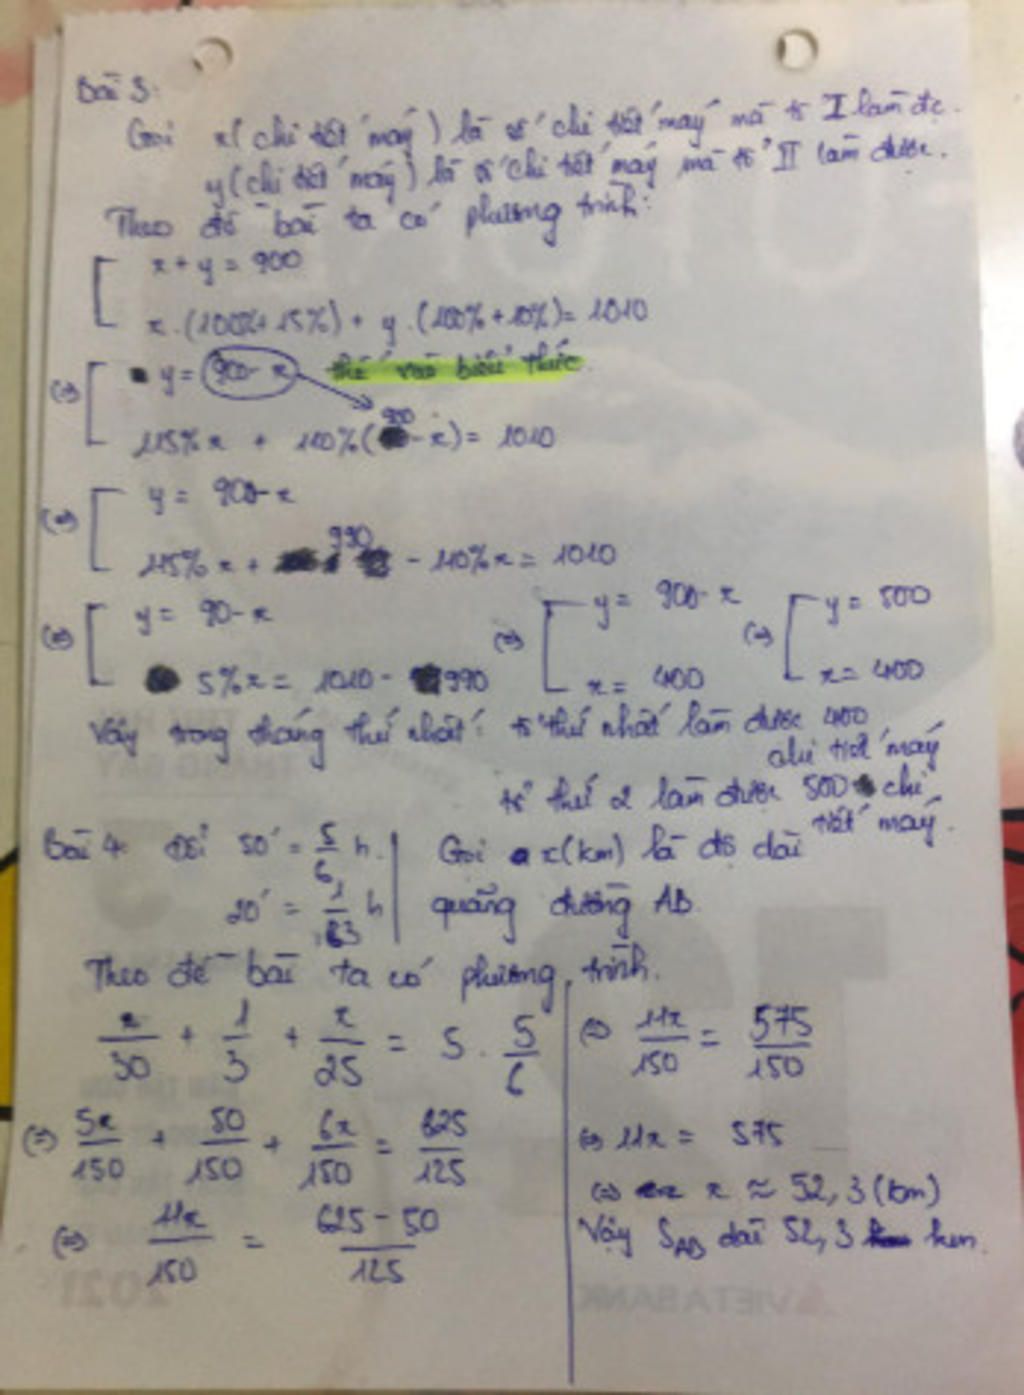 Bài 3:
Gọi x( chi tiết máy ) là số chi tiết máy mà tổ I làm đc.
y( chi tiết máy ) là số chi tiết máy mà tổ II làm được.
Theo đề bài ta có phương trình:
x + y = 900
x . (100% + 15%) + y . (100% + 10%) = 1010
(=) y = 900 - x thế vào biểu thức.
115% x + 110% (900 - x) = 1010
(=) y = 900 - x
115% x + 990 - 110% x = 1010
(=) y = 90 - x
5% x = 1010 - 990
(=) y = 900 - x
x = 400
(=) y = 500
x = 400
Vậy trong tháng thứ nhất: tổ thứ nhất làm được 400
chi tiết máy
tổ thứ 2 làm được 500 chi
tiết máy.
Bài 4: Đổi 50' = 5/6 h.
20' = 1/3 h
Gọi x(km) là độ dài
quãng đường AB.
Theo đề bài ta có phương trình.
x/30 + 1/3 + x/25 = 5 . 5/6
(=) 5x/150 + 50/150 + 6x/150 = 625/125
(=) 11x/150 = 625 - 50/125
(=) 11x/150 = 575/150
(=) 11x = 575
(=) x ≈ 52,3 (km)
Vậy SAB dài 52,3 km.
2021
VIETABANK